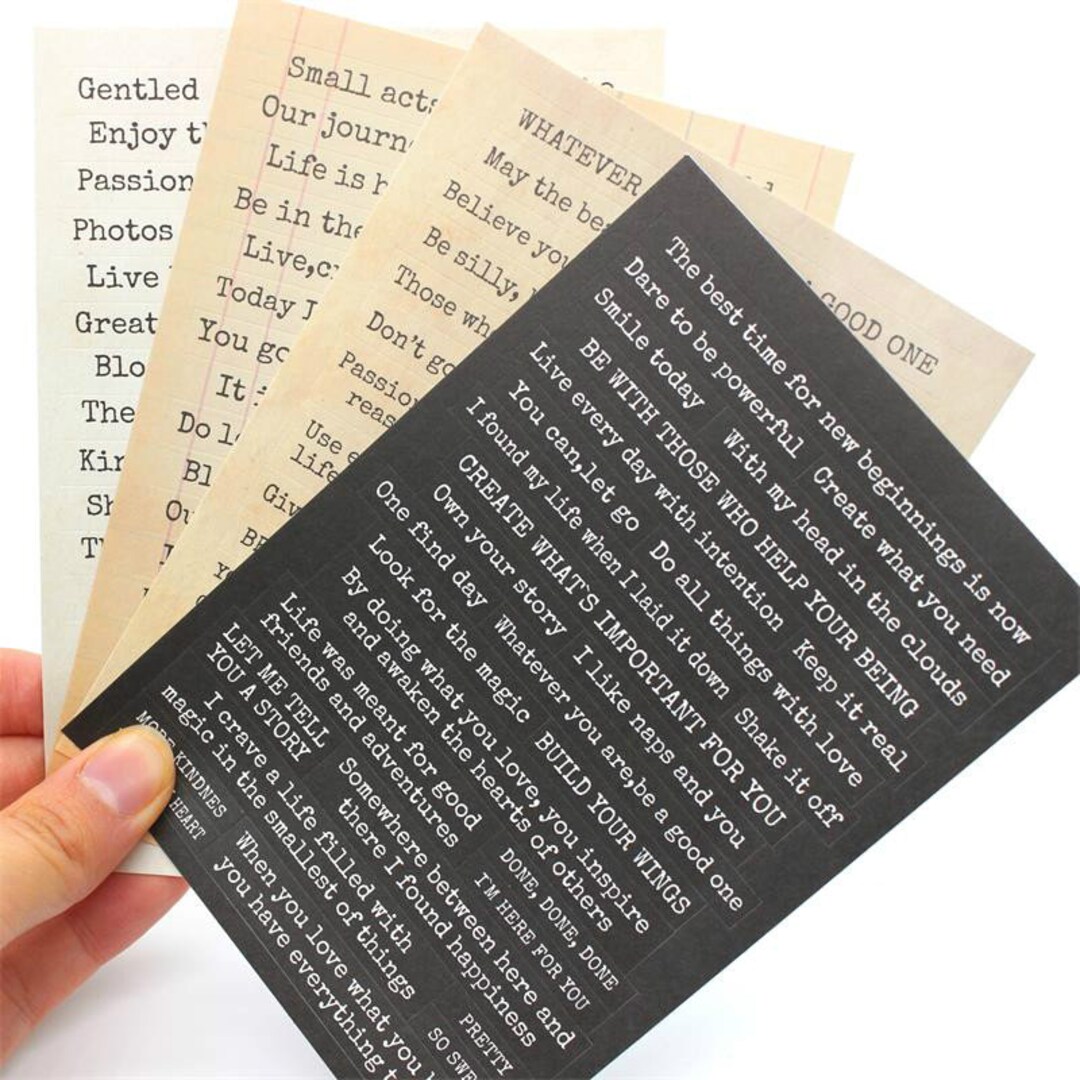 Gentled
Enjoy
Passion
Photos
Live
Great
The
Small acts
Our
Life is
Be in the
Live,
Today I
You
It
Do
WHATEVER
GOOD ONE
May the
Believe you
Be silly,
Those
Don't
Use
The best time for new beginnings is now
Dare to be powerful Create what you need
Smile today With my head in the clouds
BE WITH THOSE WHO HELP YOUR BEING
Live every day with intention Keep it real
You can,let go Do all things with love
I found my life when I laid it down Shake it off
CREATE WHAT'S IMPORTANT FOR YOU
Own your story I like naps and you
One find day Whatever you are,be a good one
Look for the magic BUILD YOUR WINGS
By doing what you love, you inspire
and awaken the hearts of others
DONE, DONE, DONE
I'M HERE FOR YOU
Life was meant for good
friends and adventures
Somewhere between here and
there I found happiness
LET ME TELL
YOU A STORY
PRETTY
SO
I crave a life filled with
magic in the smallest of things
When you love what you
you have everything
KINDNES
HEART